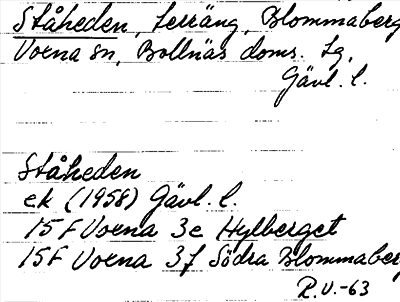 Ståheden, terräng, Blommaberg
Voxna sn, Bollnäs doms. tg,
Gävl. l.
Ståheden
ek (1958) Gävl. l.
15F Voxna 3e Hylberget
15F Voxna 3f Södra Blommaberg
R.V.-63